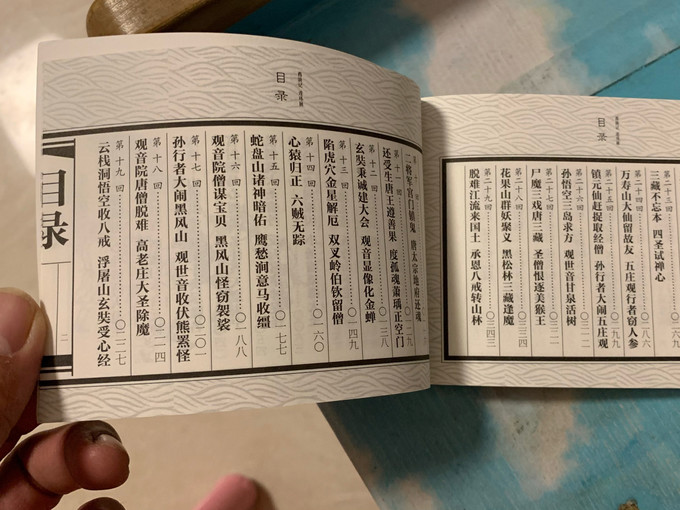 目录
二将军宫门镇鬼 唐太宗地府还魂
第十一回
还受生唐王遵善果 度孤魂萧瑀正空门
第十二回……〇一三八
玄奘秉诚建大会 观音显像化金蝉
第十三回……〇一四九
陷虎穴金星解厄 双叉岭伯钦留僧
第十四回……〇一六〇
心猿归正 六贼无踪
第十五回……〇一七七
蛇盘山诸神暗佑 鹰愁涧意马收缰
第十六回……〇一八八
观音院僧谋宝贝 黑风山怪窃袈裟
第十七回……〇二〇一
孙行者大闹黑风山 观世音收伏熊罴怪
第十八回……〇二一四
观音院唐僧脱难 高老庄大圣除魔
第十九回……〇二二七
云栈洞悟空收八戒 浮屠山玄奘受心经
目录
二
目录
第二十三回
三藏不忘本 四圣试禅心
第二十四回……〇二八六
万寿山大仙留故友 五庄观行者窃人参
第二十五回……〇二九九
镇元仙赶捉取经僧 孙行者大闹五庄观
第二十六回
孙悟空三岛求方 观世音甘泉活树
第二十七回
尸魔三戏唐三藏 圣僧恨逐美猴王
第二十八回
花果山群妖聚义 黑松林三藏逢魔
第二十九回……〇三四三
脱难江流来国土 承恩八戒转山林